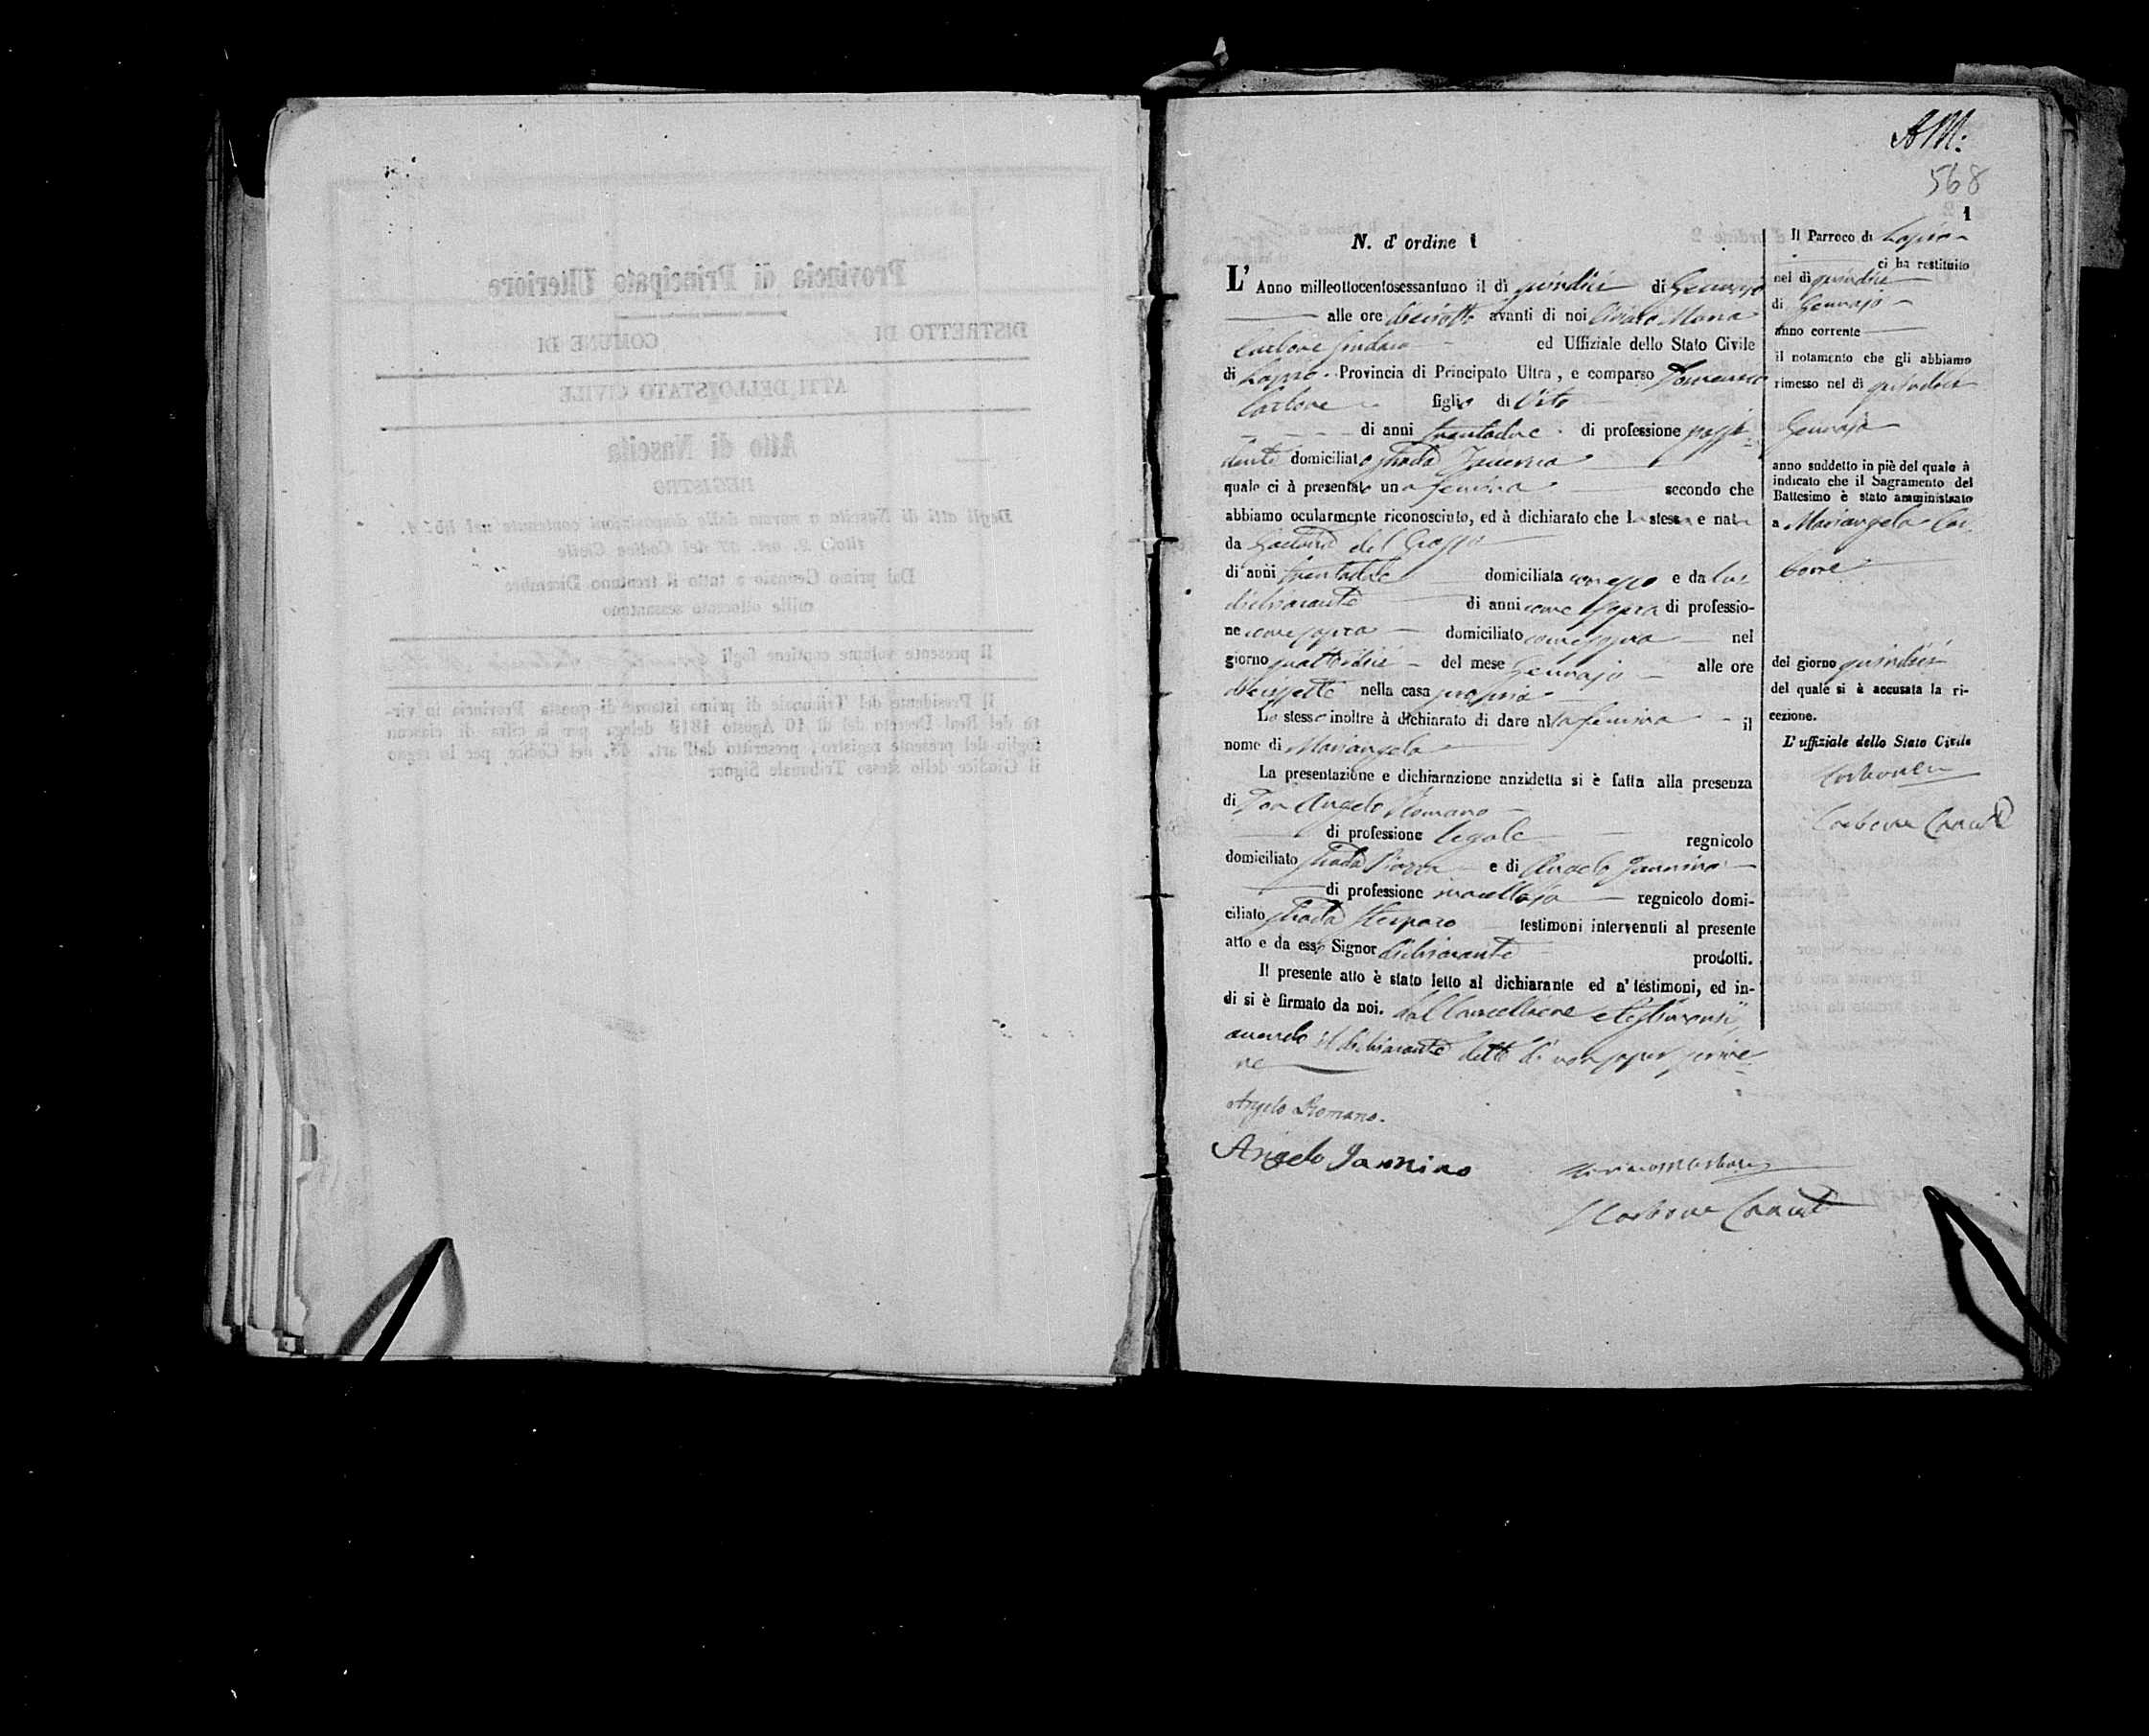 AM:
568
1
N. d' ordine 1
L' Anno milleottocentosessantuno il dì quindici di Gennajo
alle ore diciotto avanti di noi Maria
Carbone Sindaco ed Uffiziale dello Stato Civile
di Lapio Provincia di Principato Ultra, e comparso Domenico
Carbone figlio di Vito
di anni trentadue di professione possi-
dente domiciliato strada Taverna
quale ci à presentato una femina secondo che
abbiamo ocularmente riconosciuto, ed à dichiarato che la stessa e nata
da del Grosso
di anni trentadue domiciliata con esso e da lui
dichiarante di anni come sopra di professio-
ne come sopra domiciliato come sopra nel
giorno quattordici del mese Gennajo alle ore
diciassette nella casa propria
Lo stesso inoltre à dichiarato di dare alla femina il
nome di Mariangela
La presentazione e dichiarazione anzidetta si è fatta alla presenza
di Don Angelo Romano
di professione legale regnicolo
domiciliato strada Piazza e di Angelo Jannino
di professione macellajo regnicolo domi-
ciliato strada testimoni intervenuti al presente
atto e da esso Signor dichiarante prodotti.
Il presente atto è stato letto al dichiarante ed a' testimoni, ed in-
di si è firmato da noi. dal Cancelliere e testimonj,
avendo il dichiarante detto di non saper scrive-
re
Angelo Romano.
Angelo Jannino
Carbone
Il Parroco di Lapio
ci ha restituito
nel dì quindici
di Gennajo
anno corrente
il notamento che gli abbiamo
rimesso nel dì quindici
Gennajo
anno suddetto in piè del quale à
indicato che il Sagramento del
Battesimo è stato amministrato
a Mariangela Car-
bone
del giorno quindici
del quale si è accusata la ri-
cezione.
L' uffiziale dello Stato Civile
Carbone
Carbone
Provincia di Principato Ulteriore
DISTRETTO DI COMUNE DI
ATTI DELLO STATO CIVILE
Atto di Nascita
REGISTRO
Dal primo Gennaio a tutto il trentuno Dicembre
mille ottocento sessantuno
Il presente volume contiene fogli